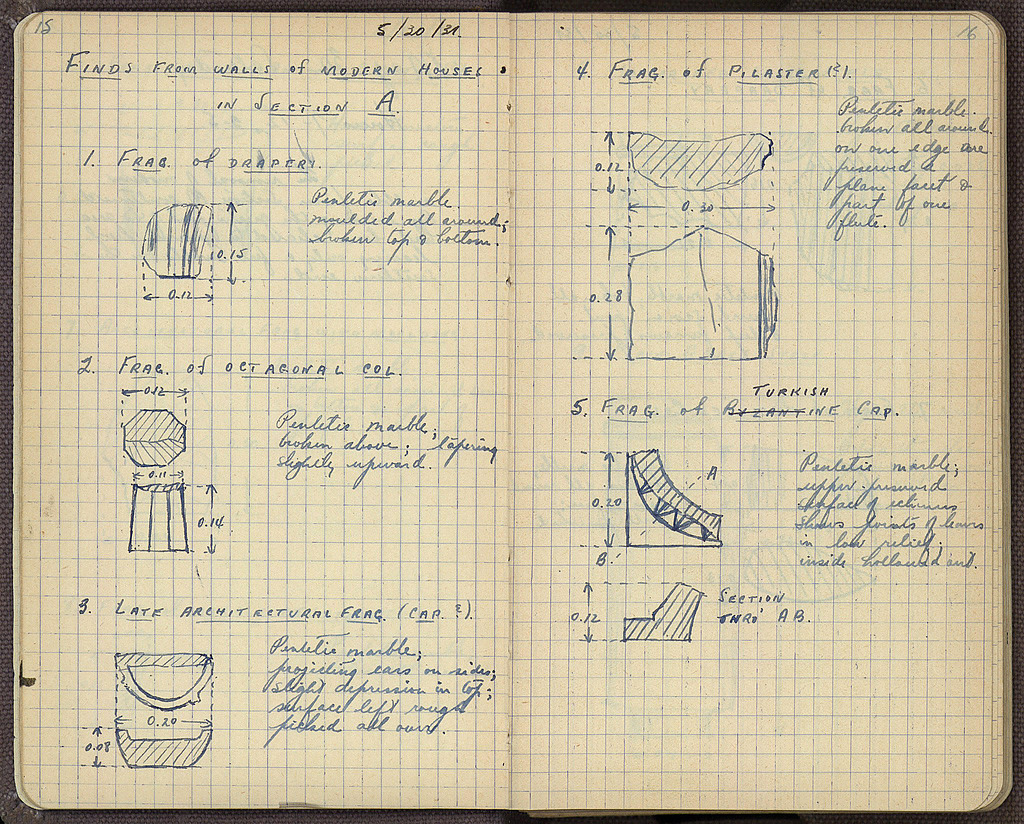 15
5/20/31.
FINDS FROM WALLS of MODERN HOUSES
IN SECTION A.
1. FRAG. of DRAPERY.
Pentelic marble.
moulded all around;
broken top & bottom.
0.15
0.12
2. FRAG. of OCTAGONAL COL.
0.12
Pentelic marble;
broken above; tapering
slightly upward.
0.11
0.14
3. LATE ARCHITECTURAL FRAG. (CAP.?).
Pentelic marble;
projecting ears on sides;
slight depression in top;
surface left rough
picked all over.
0.20
0.08
16
4. FRAG. of PILASTER (?).
Pentelic marble.
broken all around.
on one edge are
preserved a
plane facet &
part of one
flute.
0.12
0.30
0.28
TURKISH
5. FRAG. of BYZANTINE CAP.
A
0.20
B.
Pentelic marble;
upper preserved
surface of echinus
shows points of leaves
in low relief;
inside hollowed out.
0.12
SECTION
THRO' AB.